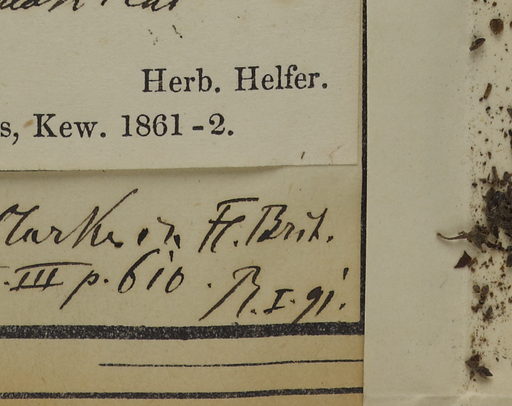 Herb. Helfer.
s, Kew. 1861-2.
Clarke in Fl. Brit.
III p. 610.
R. I. 91.